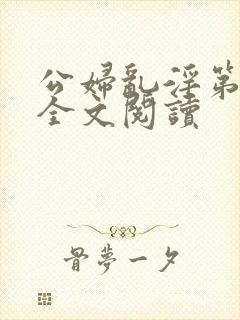 公婦亂淫第
全文閱讀
骨夢一夕